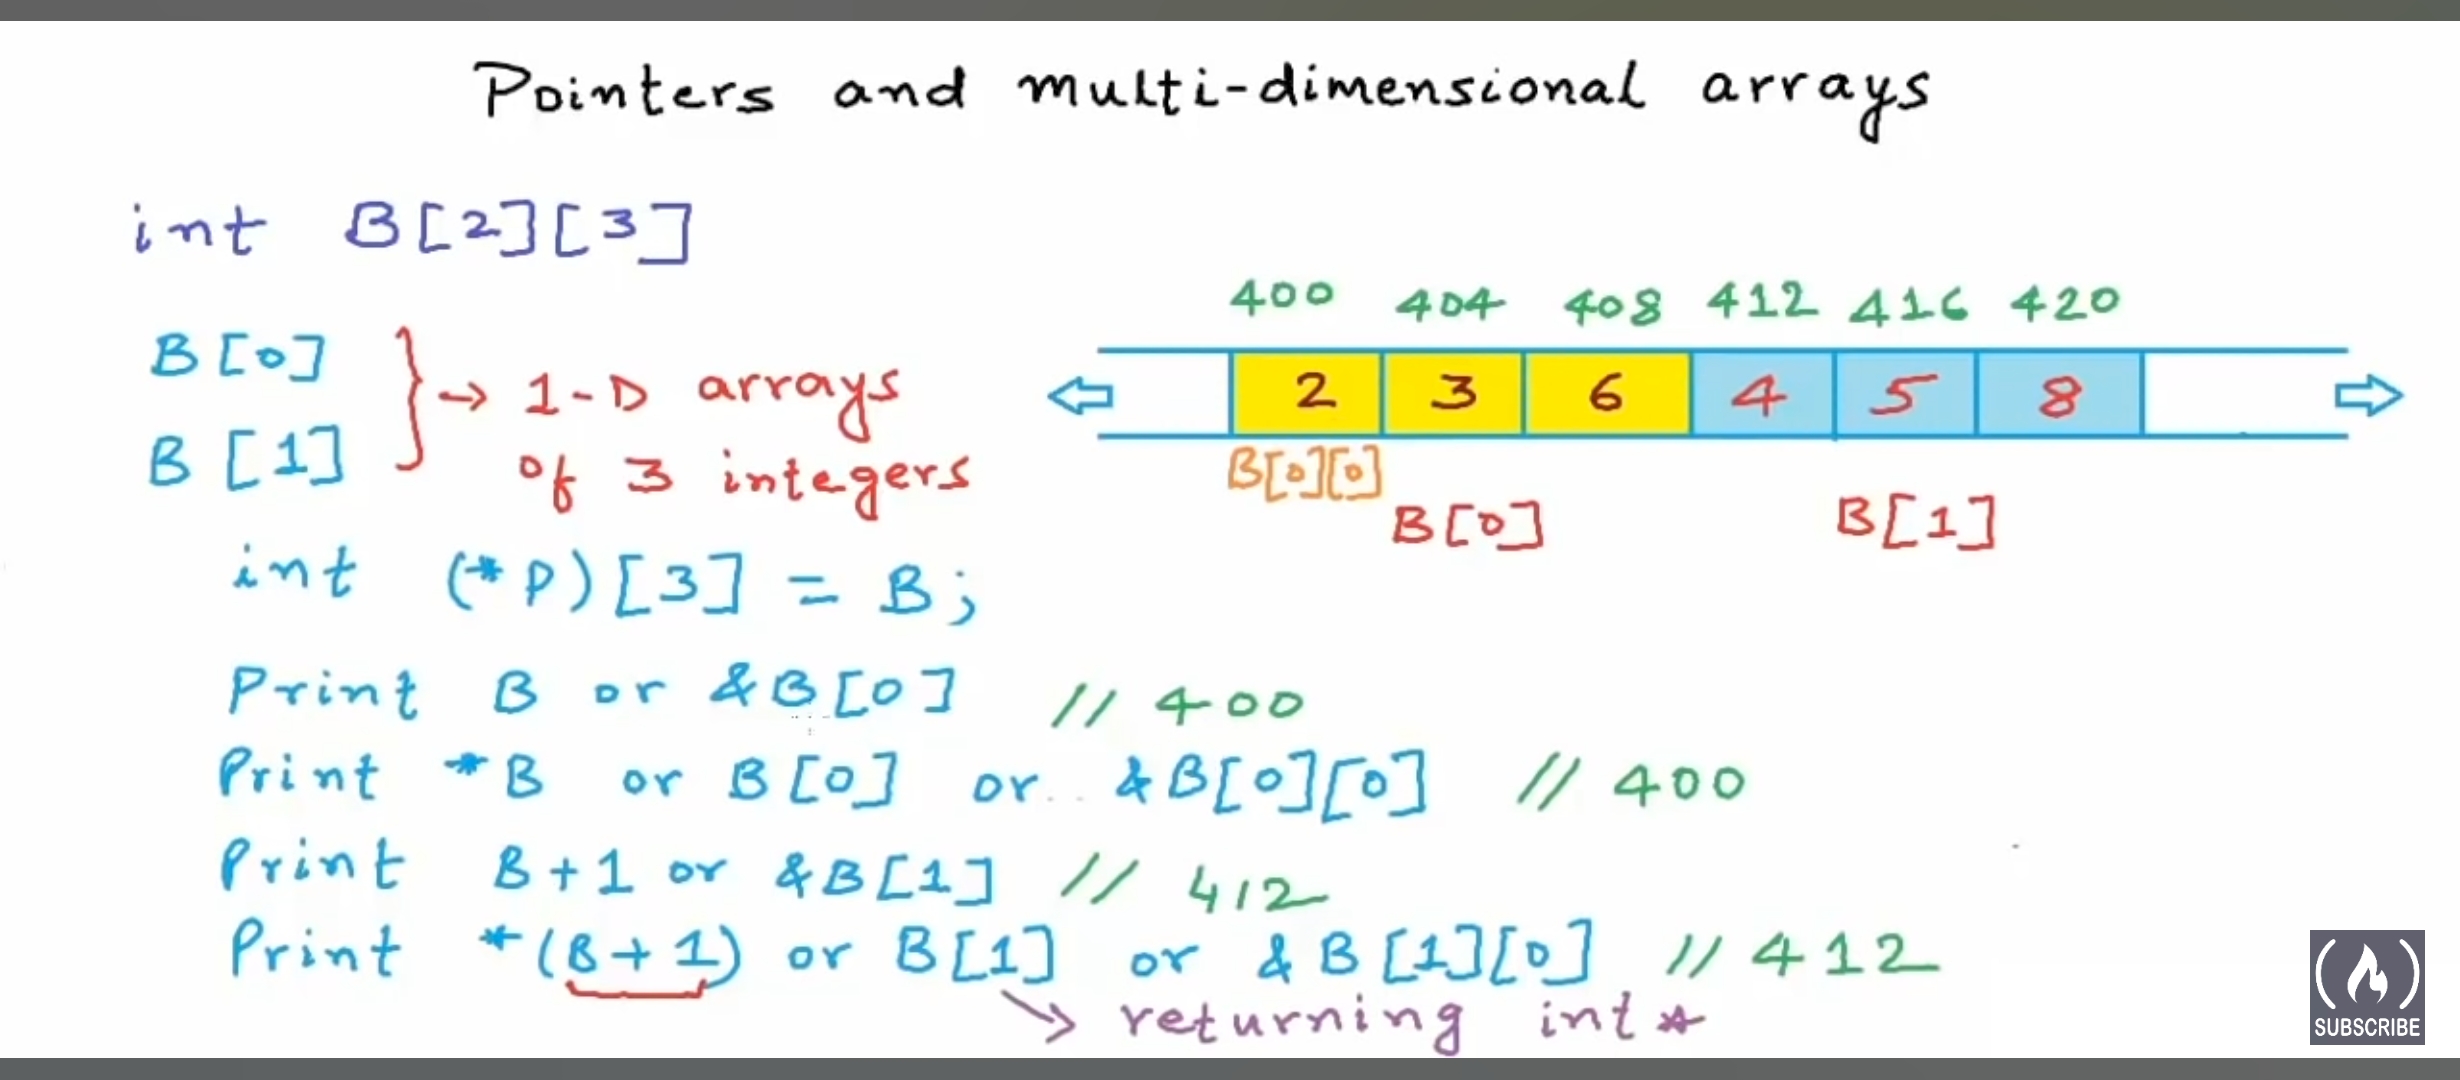 Pointers and multi-dimensional arrays
int B[2][3]
400 404 408 412 416 420
B[0]
B[1]
} → 1-D arrays
of 3 integers
2 3 6 4 5 8
B[0][0]
B[0] B[1]
int (*P)[3] = B;
Print B or &B[0] // 400
Print *B or B[0] or &B[0][0] // 400
Print B+1 or &B[1] // 412
Print *(B+1) or B[1] or &B[1][0] // 412
→ returning int *
SUBSCRIBE